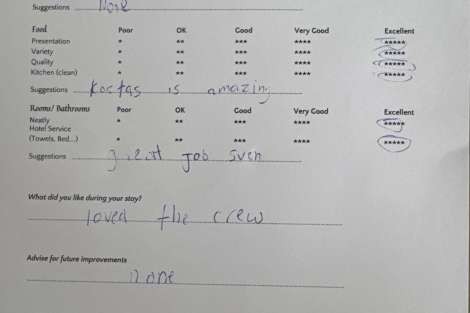 Suggestions None
Food Poor OK Good Very Good Excellent
Presentation * ** *** **** *****
Variety * ** *** **** *****
Quality * ** *** **** *****
Kitchen (clean) * ** *** **** *****
Suggestions Kostas is amazing
Rooms/ Bathrooms Poor OK Good Very Good Excellent
Neatly * ** *** **** *****
Hotel Service
(Towels, Bed...) * ** *** **** *****
Suggestions great Job Sven
What did you like during your stay?
loved the crew
Advise for future improvements
none